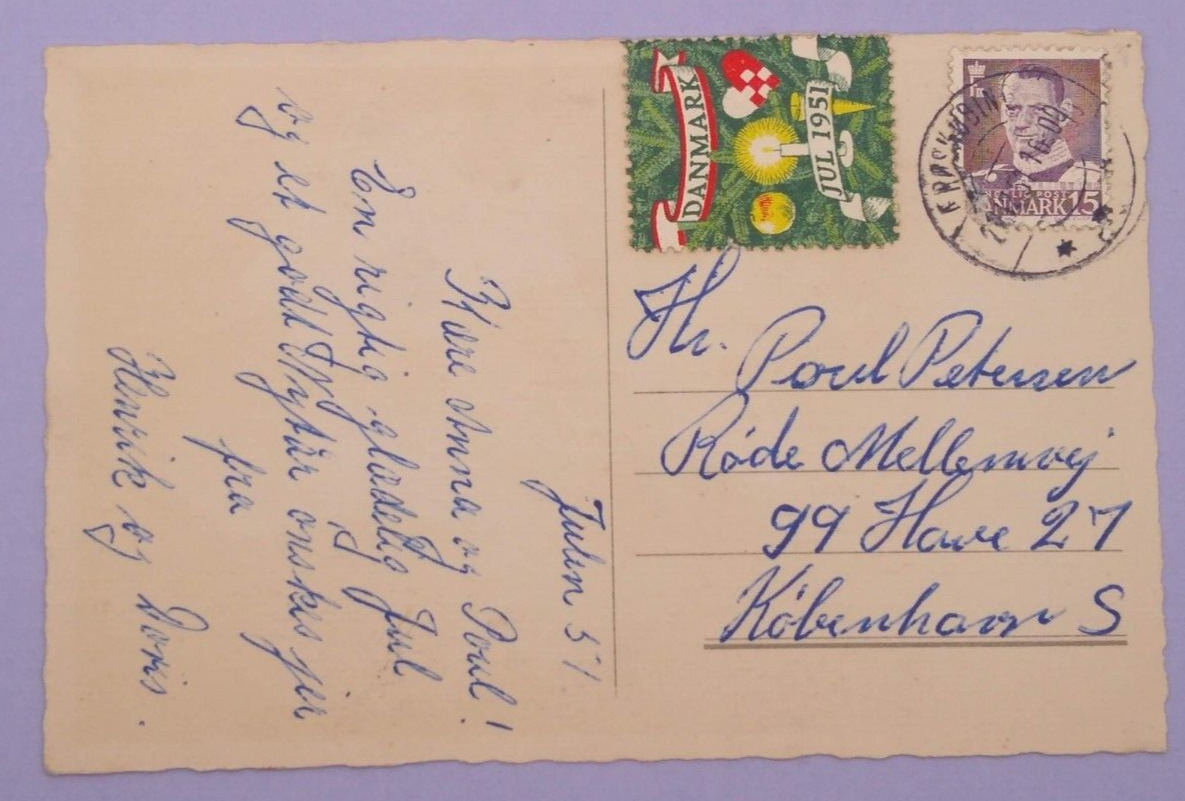 Julen 51
Kære Anna og Poul!
En rigtig glædelig Jul
og et godt Nytår ønskes jer
fra
Henrik og Doris.
DANMARK
JUL 1951
DANMARK 15
Hr. Poul Petersen
Røde Mellemvej
99 Have 27
København S